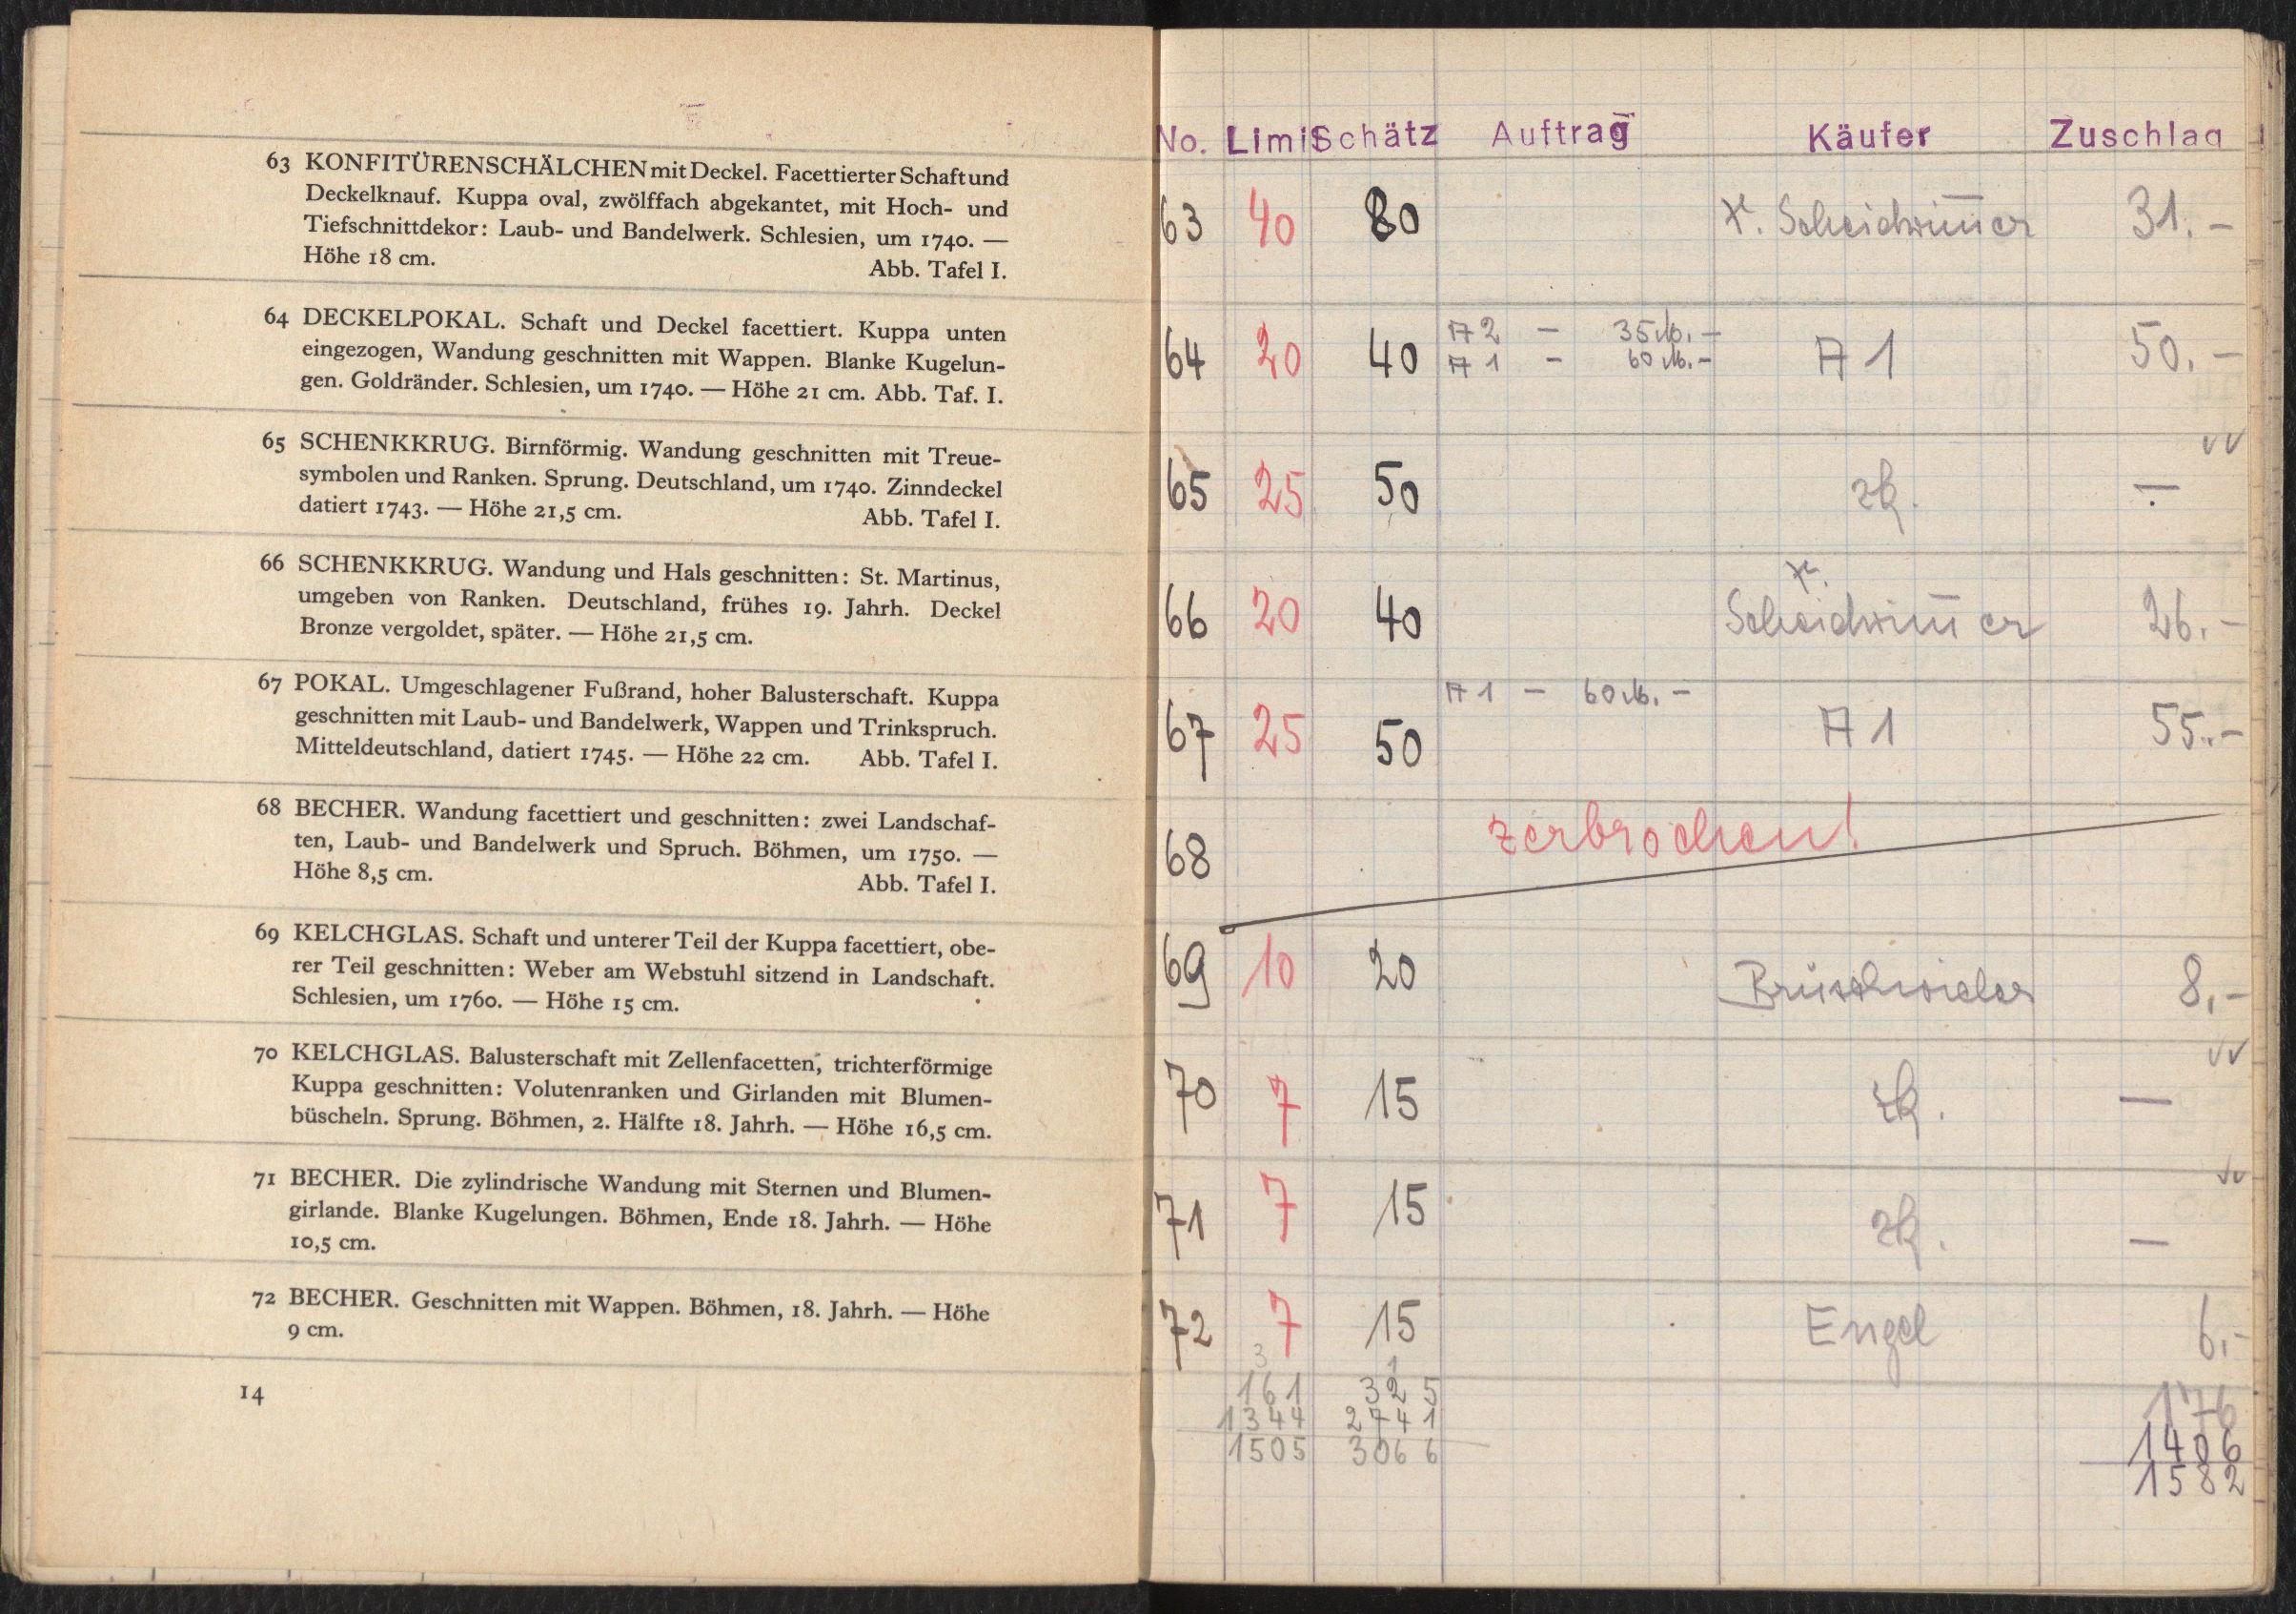 63 KONFITÜRENSCHÄLCHEN mit Deckel. Facettierter Schaft und
Deckelknauf. Kuppa oval, zwölffach abgekantet, mit Hoch- und
Tiefschnittdekor: Laub- und Bandelwerk. Schlesien, um 1740. —
Höhe 18 cm. Abb. Tafel I.
64 DECKELPOKAL. Schaft und Deckel facettiert. Kuppa unten
eingezogen, Wandung geschnitten mit Wappen. Blanke Kugelun-
gen. Goldränder. Schlesien, um 1740. — Höhe 21 cm. Abb. Taf. I.
65 SCHENKKRUG. Birnförmig. Wandung geschnitten mit Treue-
symbolen und Ranken. Sprung. Deutschland, um 1740. Zinndeckel
datiert 1743. — Höhe 21,5 cm. Abb. Tafel I.
66 SCHENKKRUG. Wandung und Hals geschnitten: St. Martinus,
umgeben von Ranken. Deutschland, frühes 19. Jahrh. Deckel
Bronze vergoldet, später. — Höhe 21,5 cm.
67 POKAL. Umgeschlagener Fußrand, hoher Balusterschaft. Kuppa
geschnitten mit Laub- und Bandelwerk, Wappen und Trinkspruch.
Mitteldeutschland, datiert 1745. — Höhe 22 cm. Abb. Tafel I.
68 BECHER. Wandung facettiert und geschnitten: zwei Landschaf-
ten, Laub- und Bandelwerk und Spruch. Böhmen, um 1750. —
Höhe 8,5 cm. Abb. Tafel I.
69 KELCHGLAS. Schaft und unterer Teil der Kuppa facettiert, obe-
rer Teil geschnitten: Weber am Webstuhl sitzend in Landschaft.
Schlesien, um 1760. — Höhe 15 cm.
70 KELCHGLAS. Balusterschaft mit Zellenfacetten, trichterförmige
Kuppa geschnitten: Volutenranken und Girlanden mit Blumen-
büscheln. Sprung. Böhmen, 2. Hälfte 18. Jahrh. — Höhe 16,5 cm.
71 BECHER. Die zylindrische Wandung mit Sternen und Blumen-
girlande. Blanke Kugelungen. Böhmen, Ende 18. Jahrh. — Höhe
10,5 cm.
72 BECHER. Geschnitten mit Wappen. Böhmen, 18. Jahrh. — Höhe
9 cm.
14
No. Limit Schätz Auftrag Käufer Zuschlag
63 40 80 Scheidwim̅er 31.-
A 2 - 35 M. -
64 20 40 A 1 - 60 M. - A 1 50.-
65 25 50 zk. -
66 20 40 Scheidwim̅er 26.-
A 1 - 60 M. -
67 25 50 A 1 55.-
68 zerbrochen!
69 10 20 8,-
70 7 15 zk. —
71 7 15 zk. —
72 7 15 Engel 6,-
3 1
161 325 176
1344 2741 1406
1505 3066 1582